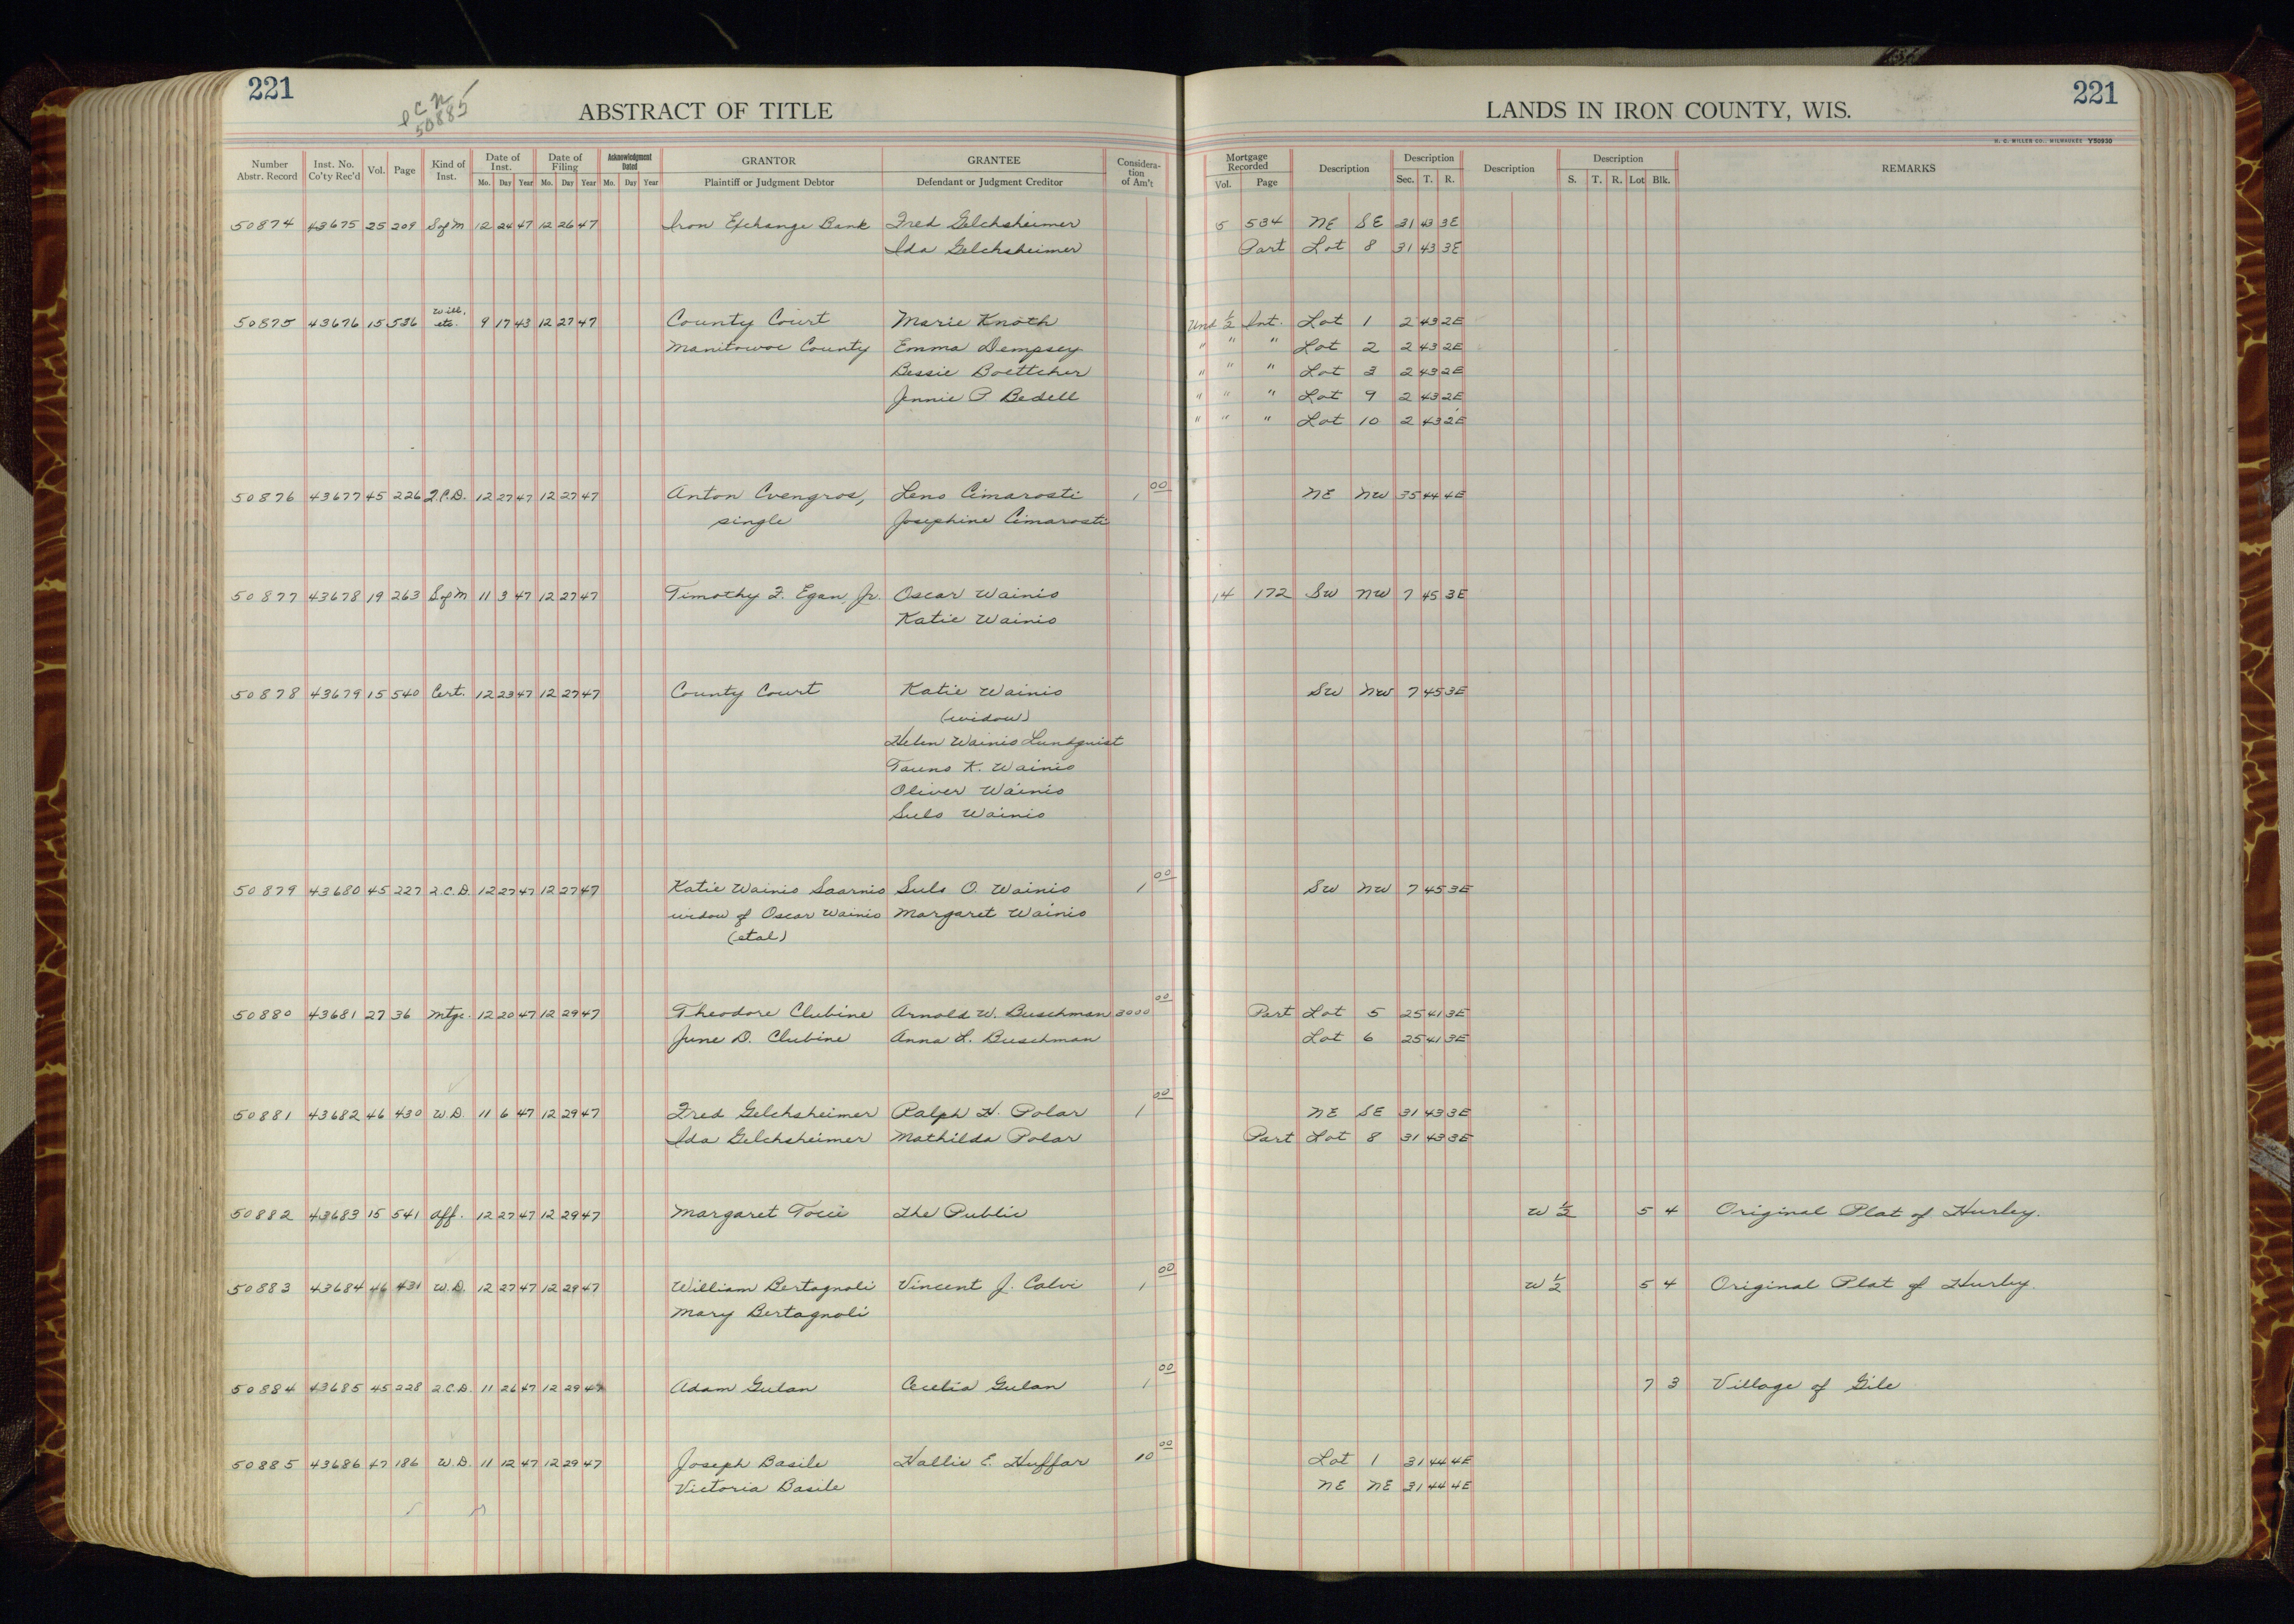 221
O C N
50885
ABSTRACT OF TITLE
LANDS IN IRON COUNTY, WIS.
221
H. C. MILLER CO., MILWAUKEE Y50930
Number Abstr. Record Inst. No. Co'ty Rec'd Vol. Page Kind of Inst. Date of Inst. Mo. Day Year Date of Filing Mo. Day Year Acknowledgment Dated Mo. Day Year GRANTOR Plaintiff or Judgment Debtor GRANTEE Defendant or Judgment Creditor Considera-tion of Am't Mortgage Recorded Vol. Page Description Description Sec. T. R. Description Description S. T. R. Lot Blk. REMARKS
50874 43675 25 209 S of M 12 24 47 12 26 47 Iron Exchange Bank Fred Gelchsheimer 5 534 NE SE 31 43 3E
Ida Gelchsheimer Part Lot 8 31 43 3E
50875 43676 15 536 Will, etc. 9 17 43 12 27 47 County Court Marie Knoth Und 1/2 Int. Lot 1 2 43 2E
Manitowoc County Emma Dempsey " " " Lot 2 2 43 2E
Bessie Boettcher " " " Lot 3 2 43 2E
Jennie P. Bedell " " " Lot 9 2 43 2E
" " " Lot 10 2 43 2E
50876 43677 45 226 Q.C.D. 12 27 47 12 27 47 Anton Cvengros, Leno Cimarosti 1 00 NE NW 35 44 4E
single Josephine Cimarosti
50877 43678 19 263 S of M 11 3 47 12 27 47 Timothy F. Egan, Jr. Oscar Wainio 14 172 SW NW 7 45 3E
Katie Wainio
50878 43679 15 540 Cert. 12 23 47 12 27 47 County Court Katie Wainio SW NW 7 45 3E
(widow)
Helen Wainio Lundquist
Tauno K. Wainio
Oliver Wainio
Sulo Wainio
50879 43680 45 227 Q.C.D. 12 27 47 12 27 47 Katie Wainio Saarnio Sulo O. Wainio 1 00 SW NW 7 45 3E
widow of Oscar Wainio Margaret Wainio
(etal)
50880 43681 27 36 Mtge. 12 20 47 12 29 47 Theodore Clubine Arnold W. Buschman 3000 00 Part Lot 5 25 41 3E
June D. Clubine Anna L. Buschman Lot 6 25 41 3E
50881 43682 46 430 W.D. 11 6 47 12 29 47 Fred Gelchsheimer Ralph H. Polar 1 00 NE SE 31 43 3E
Ida Gelchsheimer Mathilda Polar Part Lot 8 31 43 3E
50882 43683 15 541 Aff. 12 27 47 12 29 47 Margaret Tocci The Public W 1/2 5 4 Original Plat of Hurley.
50883 43684 46 431 W.D. 12 27 47 12 29 47 William Bertagnoli Vincent J. Calvi 1 00 W 1/2 5 4 Original Plat of Hurley.
Mary Bertagnoli
50884 43685 45 228 Q.C.D. 11 26 47 12 29 47 Adam Gulan Cecelia Gulan 1 00 7 3 Village of Gile
50885 43686 47 186 W.D. 11 12 47 12 29 47 Joseph Basile Hallie E. Huffar 10 00 Lot 1 31 44 4E
Victoria Basile NE NE 31 44 4E